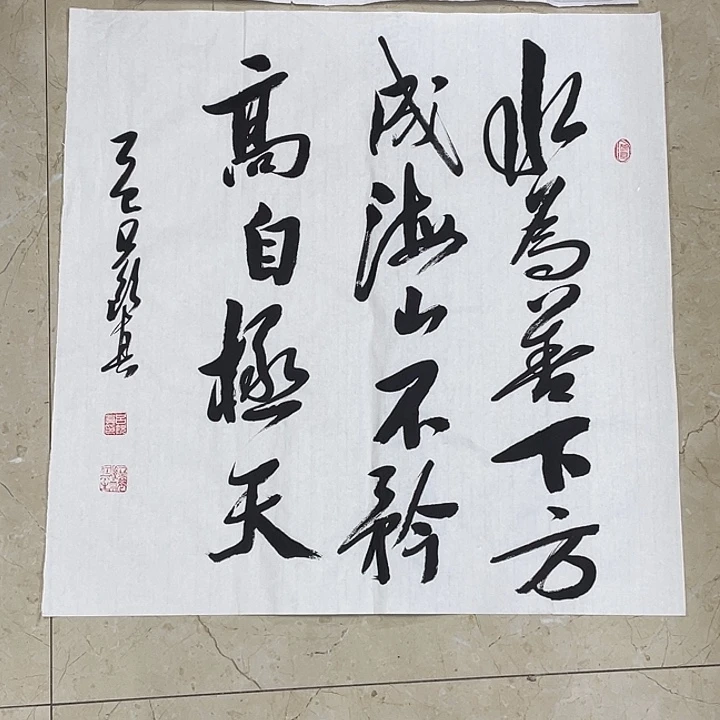 水為善下方
成海山不矜
高自極天
乙巳